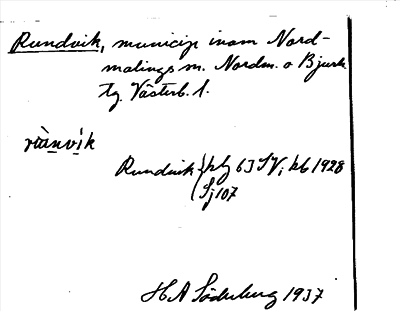 Rundvik, municip inom Nord-
malings sn. Nordm. o Bjurh
tg. Västerb. l.
ràanvik
Rundvik } plg 63 SV; kb 1928
Sj 107
H A Söderberg 1937